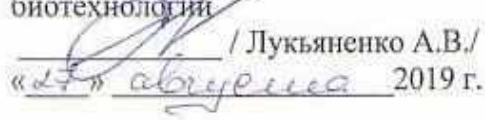 биотехнологии
/ Лукьяненко А.В./
«27» августа 2019 г.